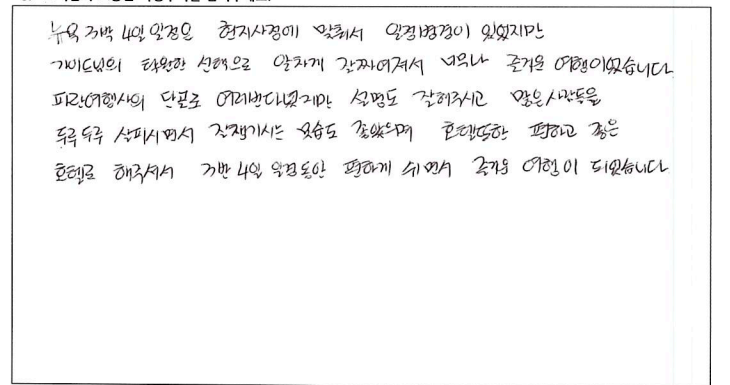 뉴욕 3박 4일 일정은 현지사정에 맞춰서 일정변경이 있었지만
가이드님의 탁월한 선택으로 알차게 잘짜여져서 너무나 즐거운 여행이었습니다
파란여행사의 단골로 여러번다녔지만 설명도 잘해주시고 많은사람들을
두루두루 살피시면서 잘챙기시는 모습도 좋았으며 호텔또한 편하고 좋은
호텔로 해주셔서 3박 4일 일정동안 편하게 쉬면서 즐거운 여행이 되었습니다